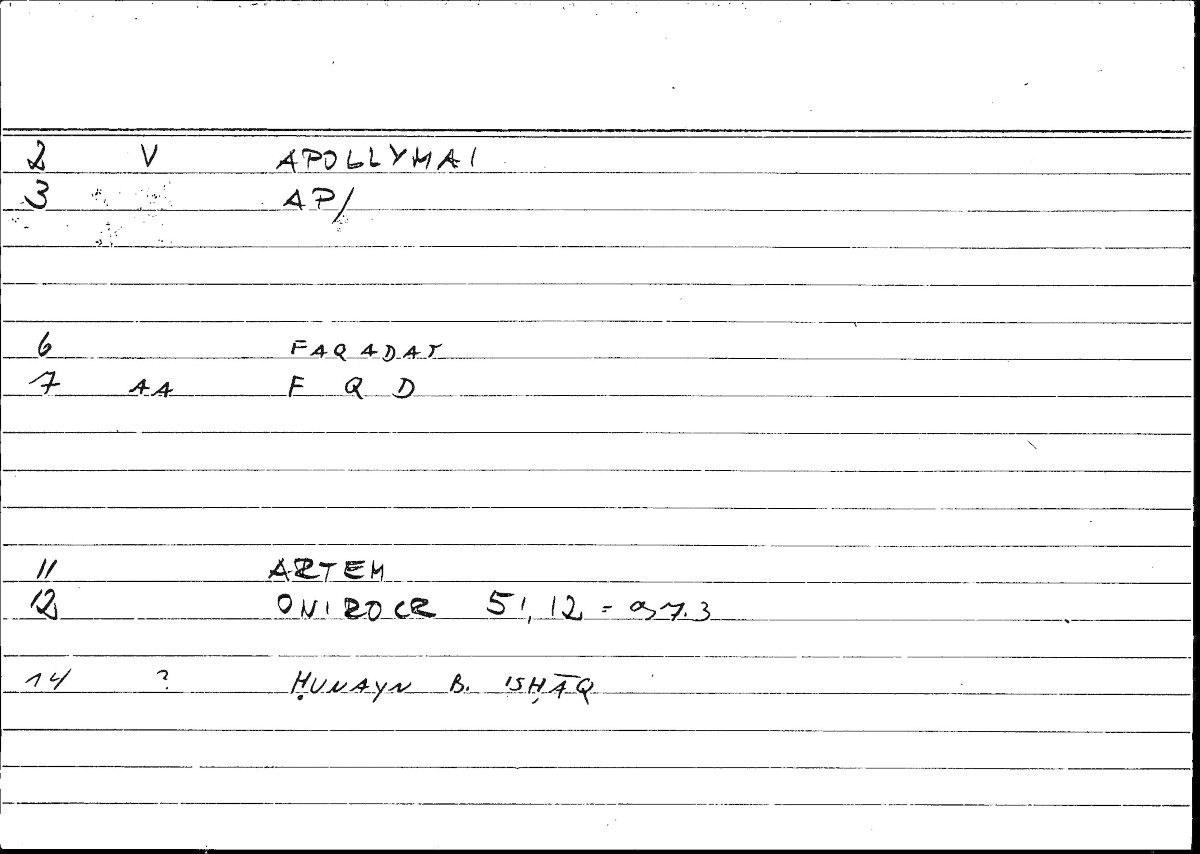 2 V APOLLYMAI
3 AP/
6 FAQADAT
7 AA F Q D
11 ARTEM
12 ONIROCR 51,12 =
14 ? ḤUNAYN B. ISḤĀQ